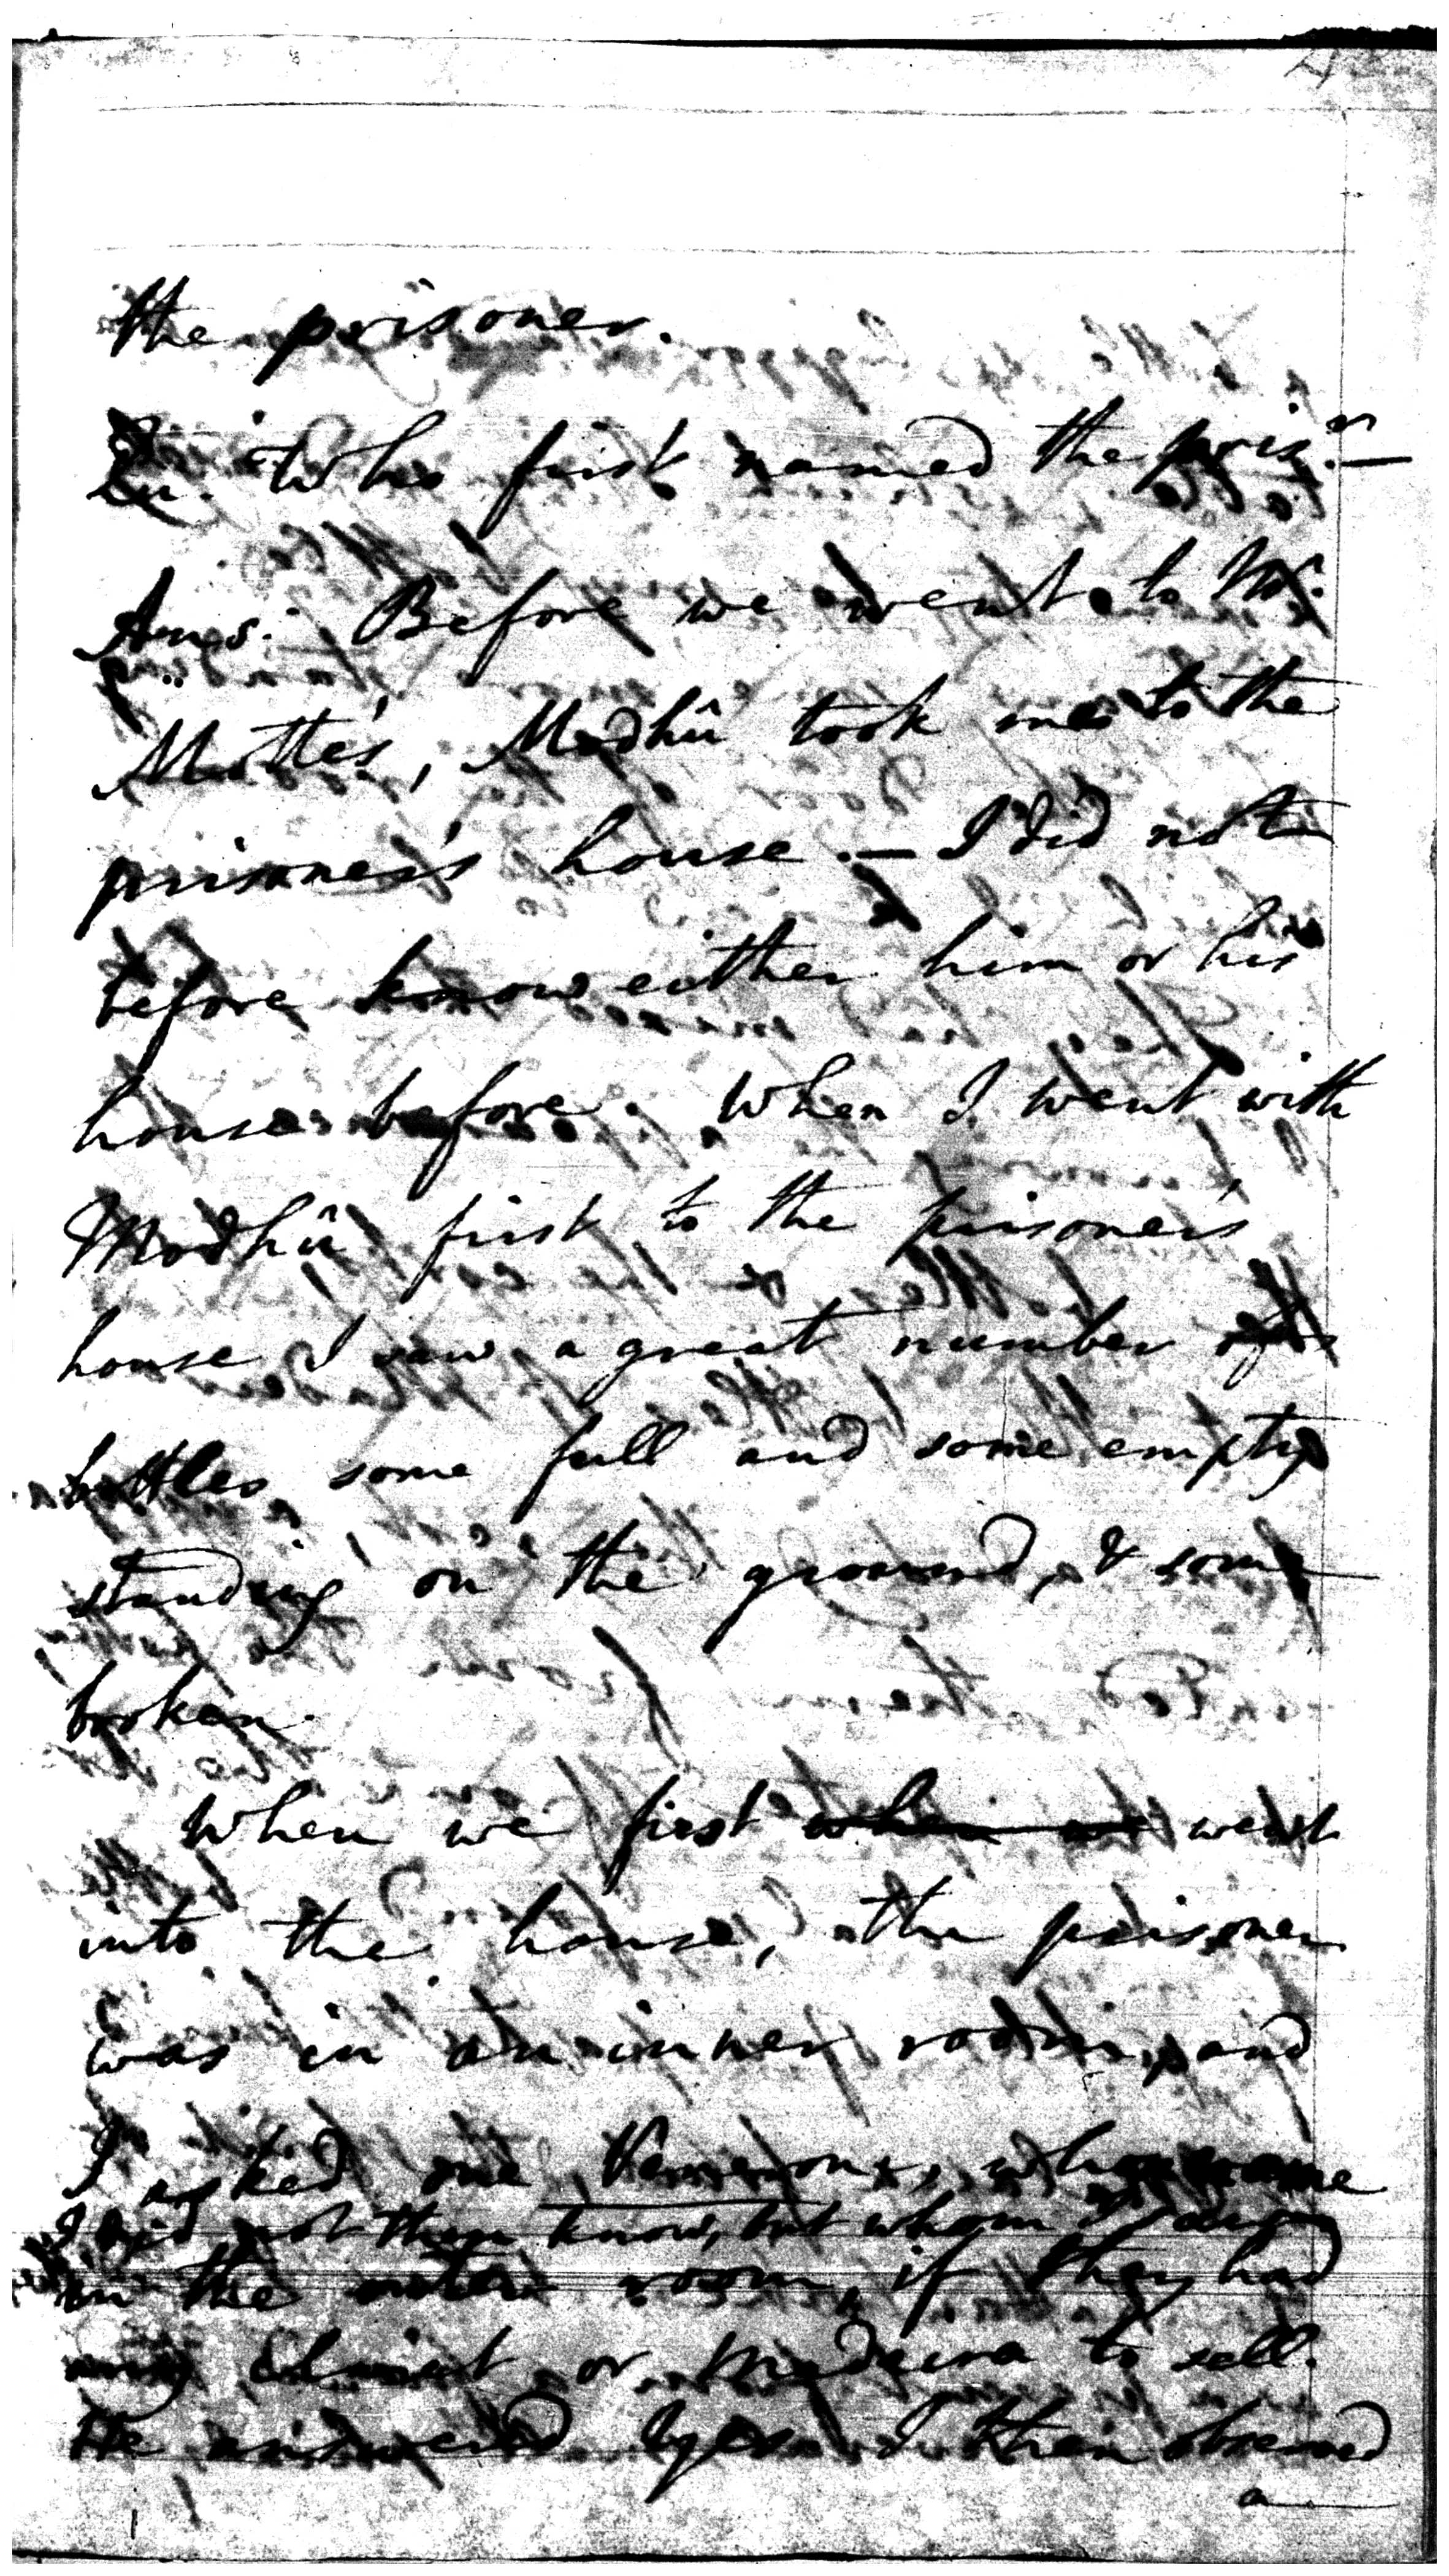 the prisoner.
Qu. Who first named the pris.r —
Ans. Before we went to Mr.
Motte's, Modhû took me to the
prisoner's house. — I did not
before know either him or his
house before. When I went with
Modhû first to the prisoner's
house I saw a great number of
bottles some full and some empty
standing on the ground, & some
broken.
When we first when we went
into the house, the prisoner
was in an inner room, and
I asked one whose name
I did not then know, but whom I saw
in the outer room, if they had
any or Madeira to sell.
He answered yes. I then observed
a